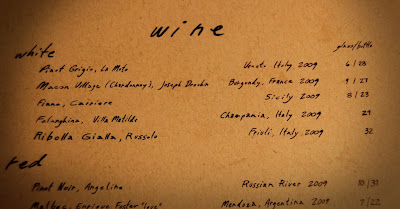 wine
glass/bottle
white
Pinot Grigio, La Moto Veneto Italy 2009 6/23
Macon Village (Chardonnay), Joseph Drouhin Burgundy, France 2009 9/27
Fiano, Sicily 2009 8/23
Falanghina, Villa Matilde Champania, Italy 2009 29
Ribolla Gialla, Russolo Friuli, Italy 2009 32
red
Pinot Noir, Angeline Russian River 2009 10/31
Malbec, Enrique Foster "love" Mendoza, Argentina 2009 7/22